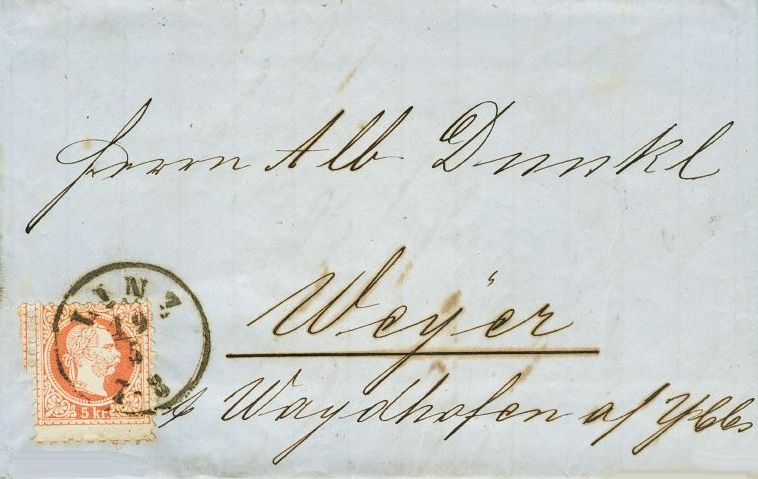 Herrn Alb Dunkl
Weÿer
Waydhofen a/ Ybbs
LINZ
19
5
5 kr